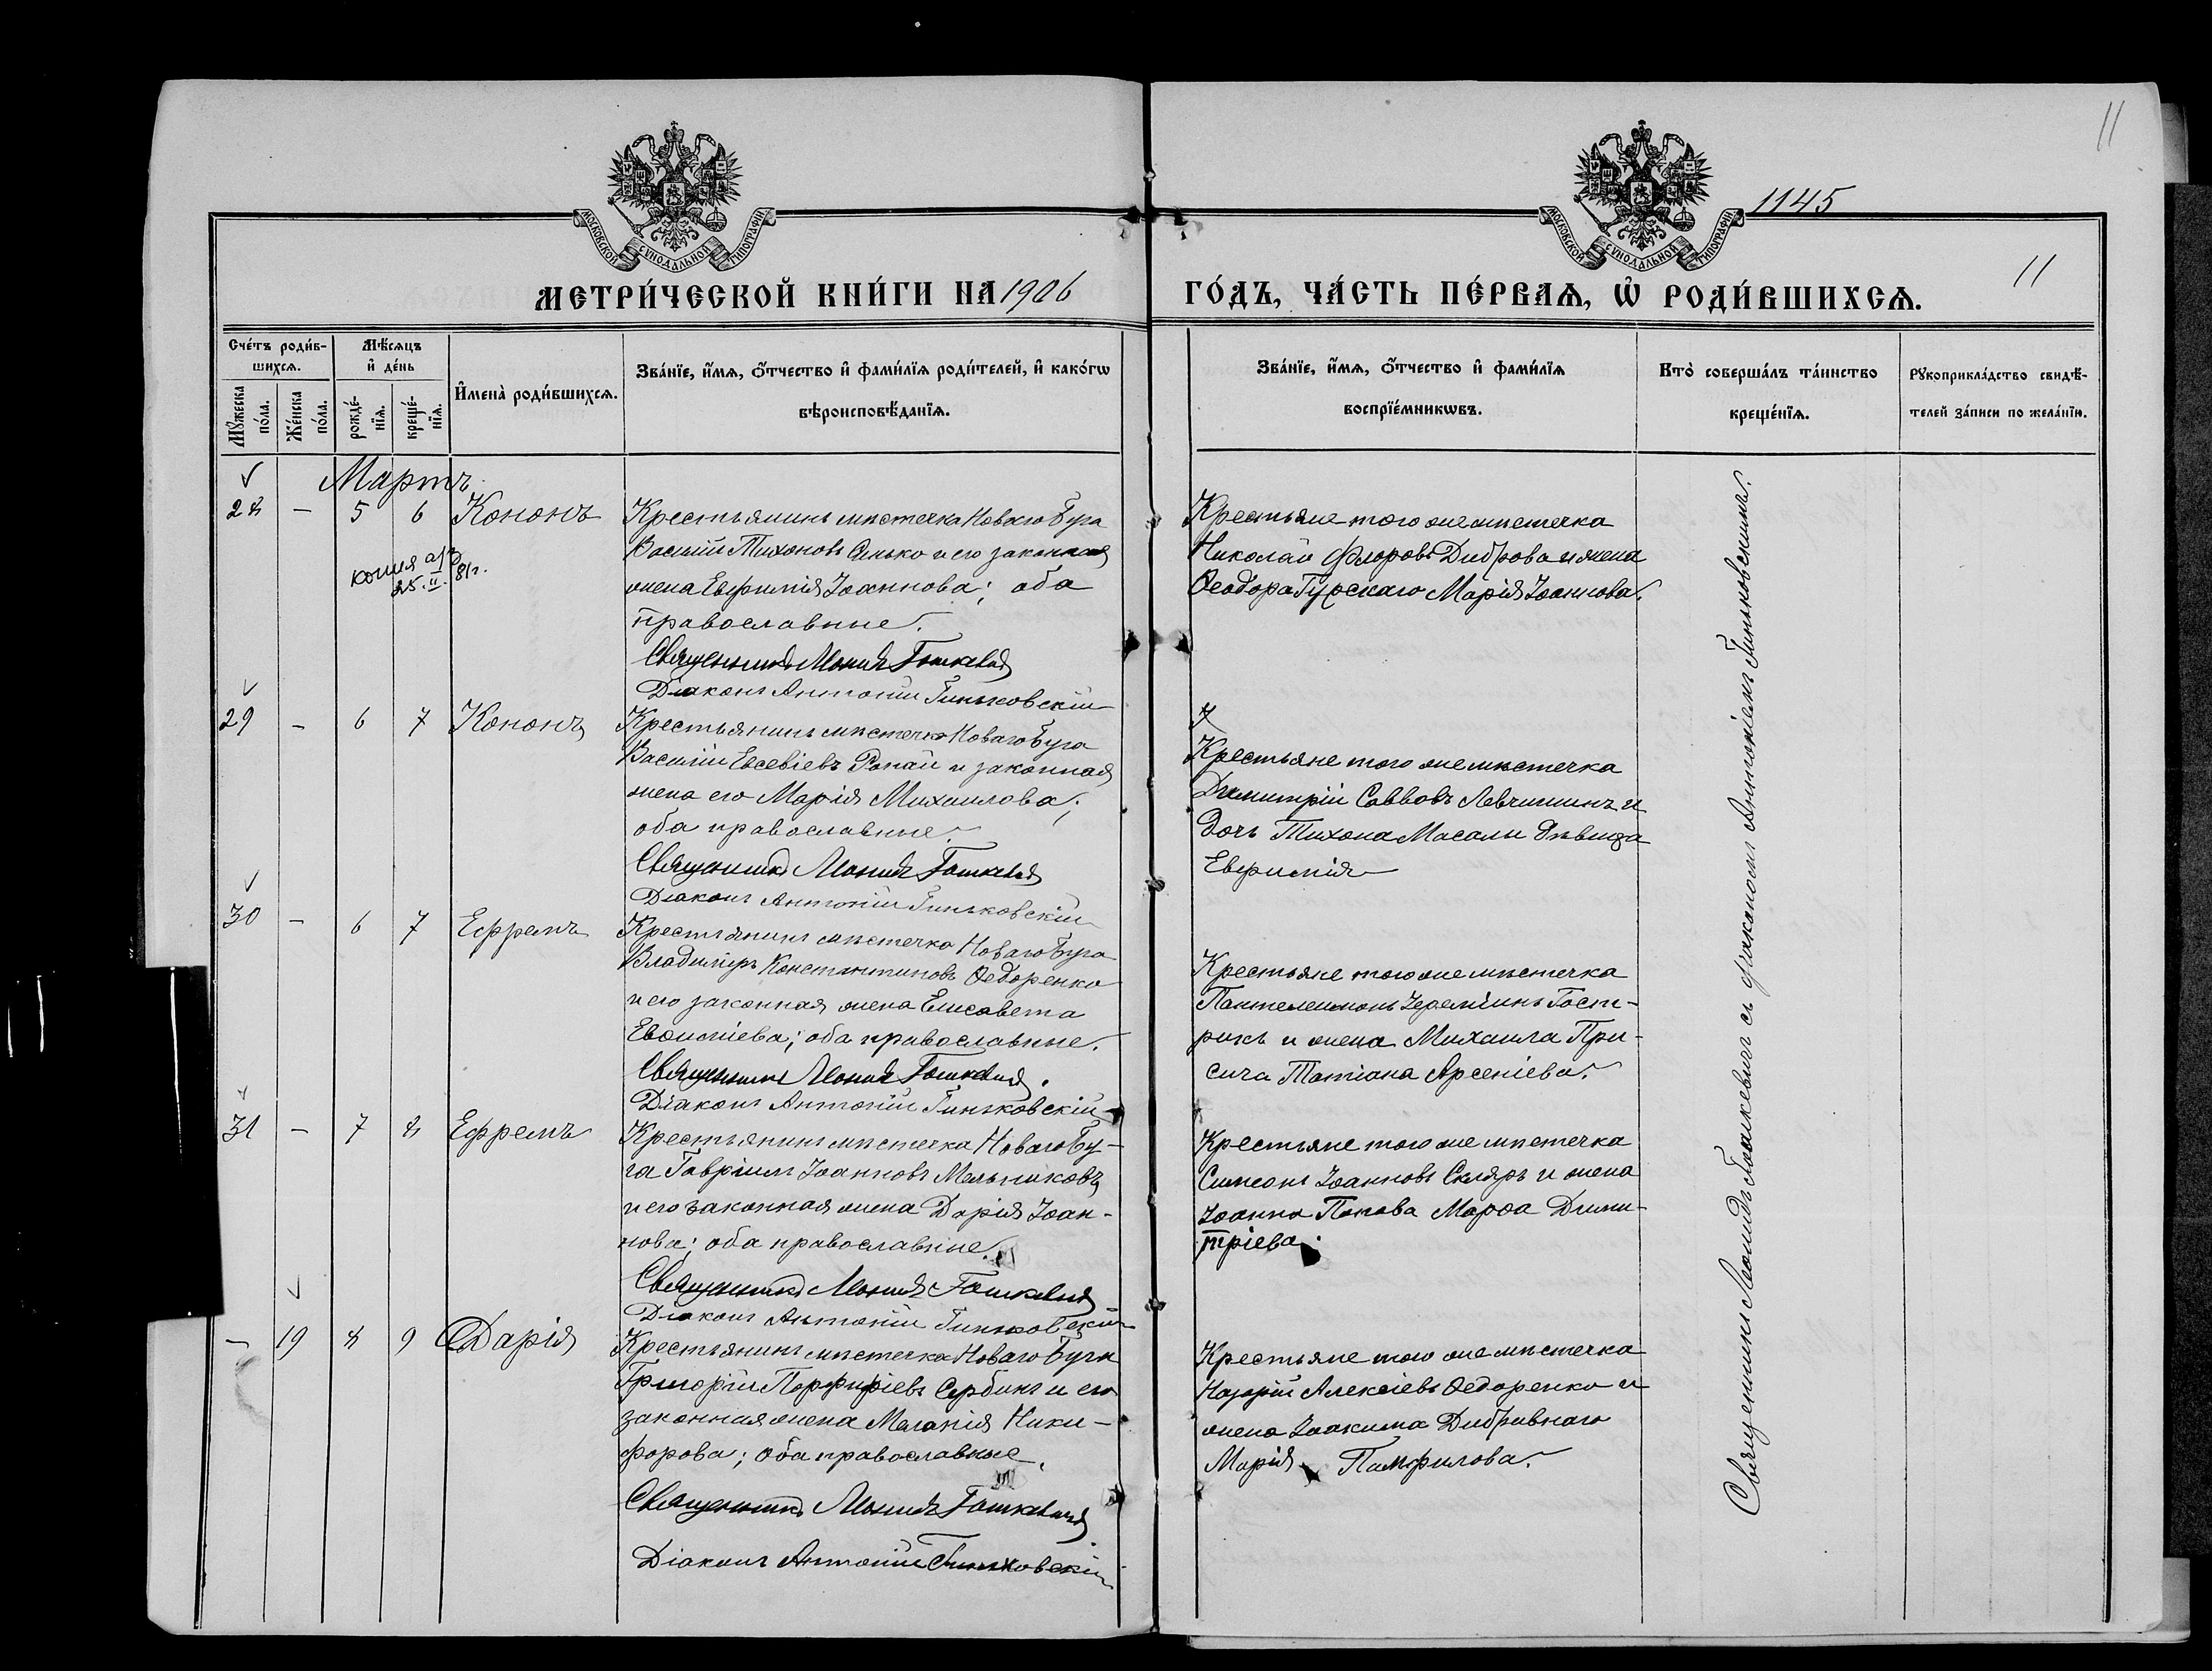 11
1145
11
МОСКОВСКОЙ СѴНОДАЛЬНОЙ ТИПОГРАФІИ
МОСКОВСКОЙ СѴНОДАЛЬНОЙ ТИПОГРАФІИ
МЕТРИ́ЧЕСКОЙ КНИ́ГИ НА 1906
ГО́ДЪ, ЧА́СТЬ ПЕ́РВАѦ, Ѡ҆ РОДИ́ВШИХСѦ.
Сче́тъ роди́вшихсѧ.
Мꙋ́жеска по́ла.
Же́нска по́ла.
Мѣ́сѧцъ и҆ де́нь
рожде́нїѧ.
креще́нїѧ.
И҆мена̀ роди́вшихсѧ.
Зва́нїе, и҆́мѧ, ѻ҆́тчество и҆ фами́лїѧ роди́телей, и҆ како́гѡ
вѣроисповѣ́данїѧ.
Зва́нїе, и҆́мѧ, ѻ҆́тчество и҆ фами́лїѧ
воспрїе́мникѡвъ.
Кто̀ соверша́лъ та́инство
креще́нїѧ.
Рꙋкоприкла́дство свидѣ́-
телей за́писи по жела́нїю.
Мартъ
28 – 5 6 Кононъ
Крестьянинъ мѣстечка Новаго Буга
Василій Тихоновъ и его законная
жена Евфимія Іоаннова; оба
православные.
Священникъ Леонидъ Гошкевичъ
Діаконъ Антоній Гиньковскій
копія а/з
25.II.81г.
Крестьяне того же мѣстечка
Николай Флоровъ Диброва и жена
Ѳеодора Гурскаго Марія Іоаннова.
29 – 6 7 Кононъ
Крестьянинъ мѣстечка Новаго Буга
Василій Евсевіевъ и законная
жена его Марія Михаилова;
оба православные.
Священникъ Леонидъ Гошкевичъ
Діаконъ Антоній Гиньковскій
Крестьяне того же мѣстечка
Димитрій Саввовъ и
дочь Тихона Масали дѣвица
Евфимія
30 – 6 7 Ефремъ
Крестьянинъ мѣстечка Новаго Буга
Владимиръ Константиновъ Ѳедоренко
и его законная жена Елисавета
Евѳиміева; оба православные.
Священникъ Леонидъ Гошкевичъ.
Діаконъ Антоній Гиньковскій
Крестьяне того же мѣстечка
Пантелеимонъ Іереміинъ Гост-
рикъ и жена Михаила При-
сича Татіана Арсеніева.
31 – 7 8 Ефремъ
Крестьянинъ мѣстечка Новаго Бу-
га Гавріилъ Іоанновъ Мельниковъ
и его законная жена Дарія Іоан-
нова; оба православные.
Священникъ Леонидъ Гошкевичъ
Діаконъ Антоній Гиньковскій
Крестьяне того же мѣстечка
Симеонъ Іоанновъ Скляръ и жена
Іоанна Попова Марѳа Дими-
тріева.
– 19 8 9 Дарія
Крестьянинъ мѣстечка Новаго Буга
Григорій Порфиріевъ Сербинъ и его
законная жена Меланія Ники-
форова; оба православные.
Священникъ Леонидъ Гошкевичъ
Діаконъ Антоній Гиньковскій
Крестьяне того же мѣстечка
Назарій Алексіевъ Ѳедоренко и
жена Іоакима Дибривнаго
Марія Памфилова.
Священникъ Леонидъ Гошкевичъ съ діакономъ Антоніемъ Гиньковскимъ.